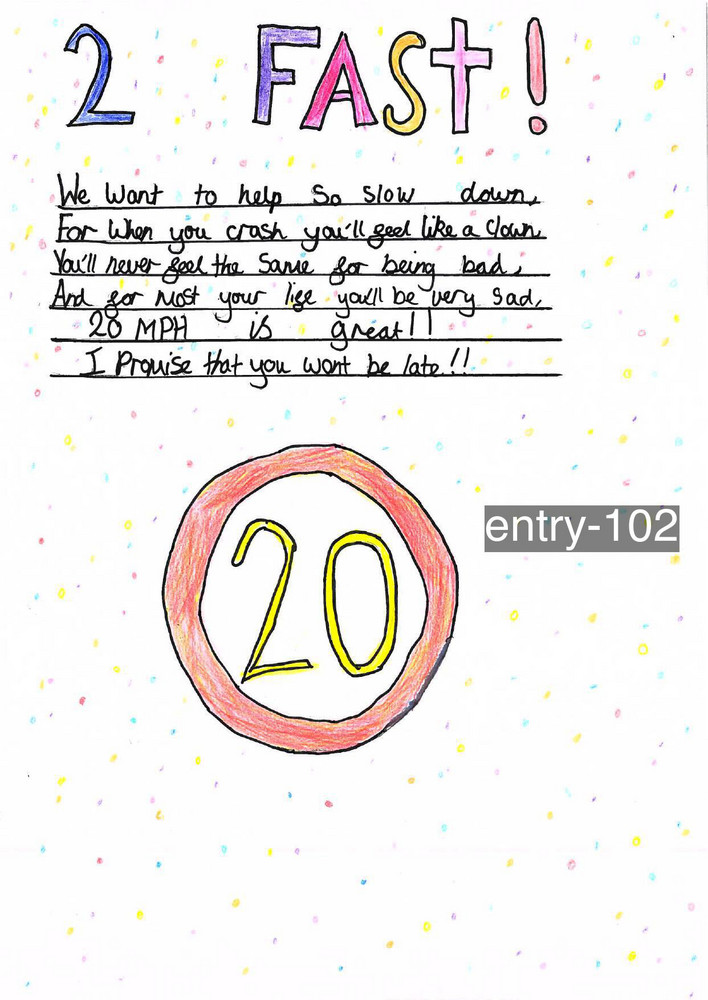 2 FAST!
We Want to help So slow down,
For When you crash you'll feel like a Clown,
You'll never feel the Same for being bad,
And for most your life you'll be very sad,
20 MPH is great!!
I Promise that you wont be late!!
entry-102
20